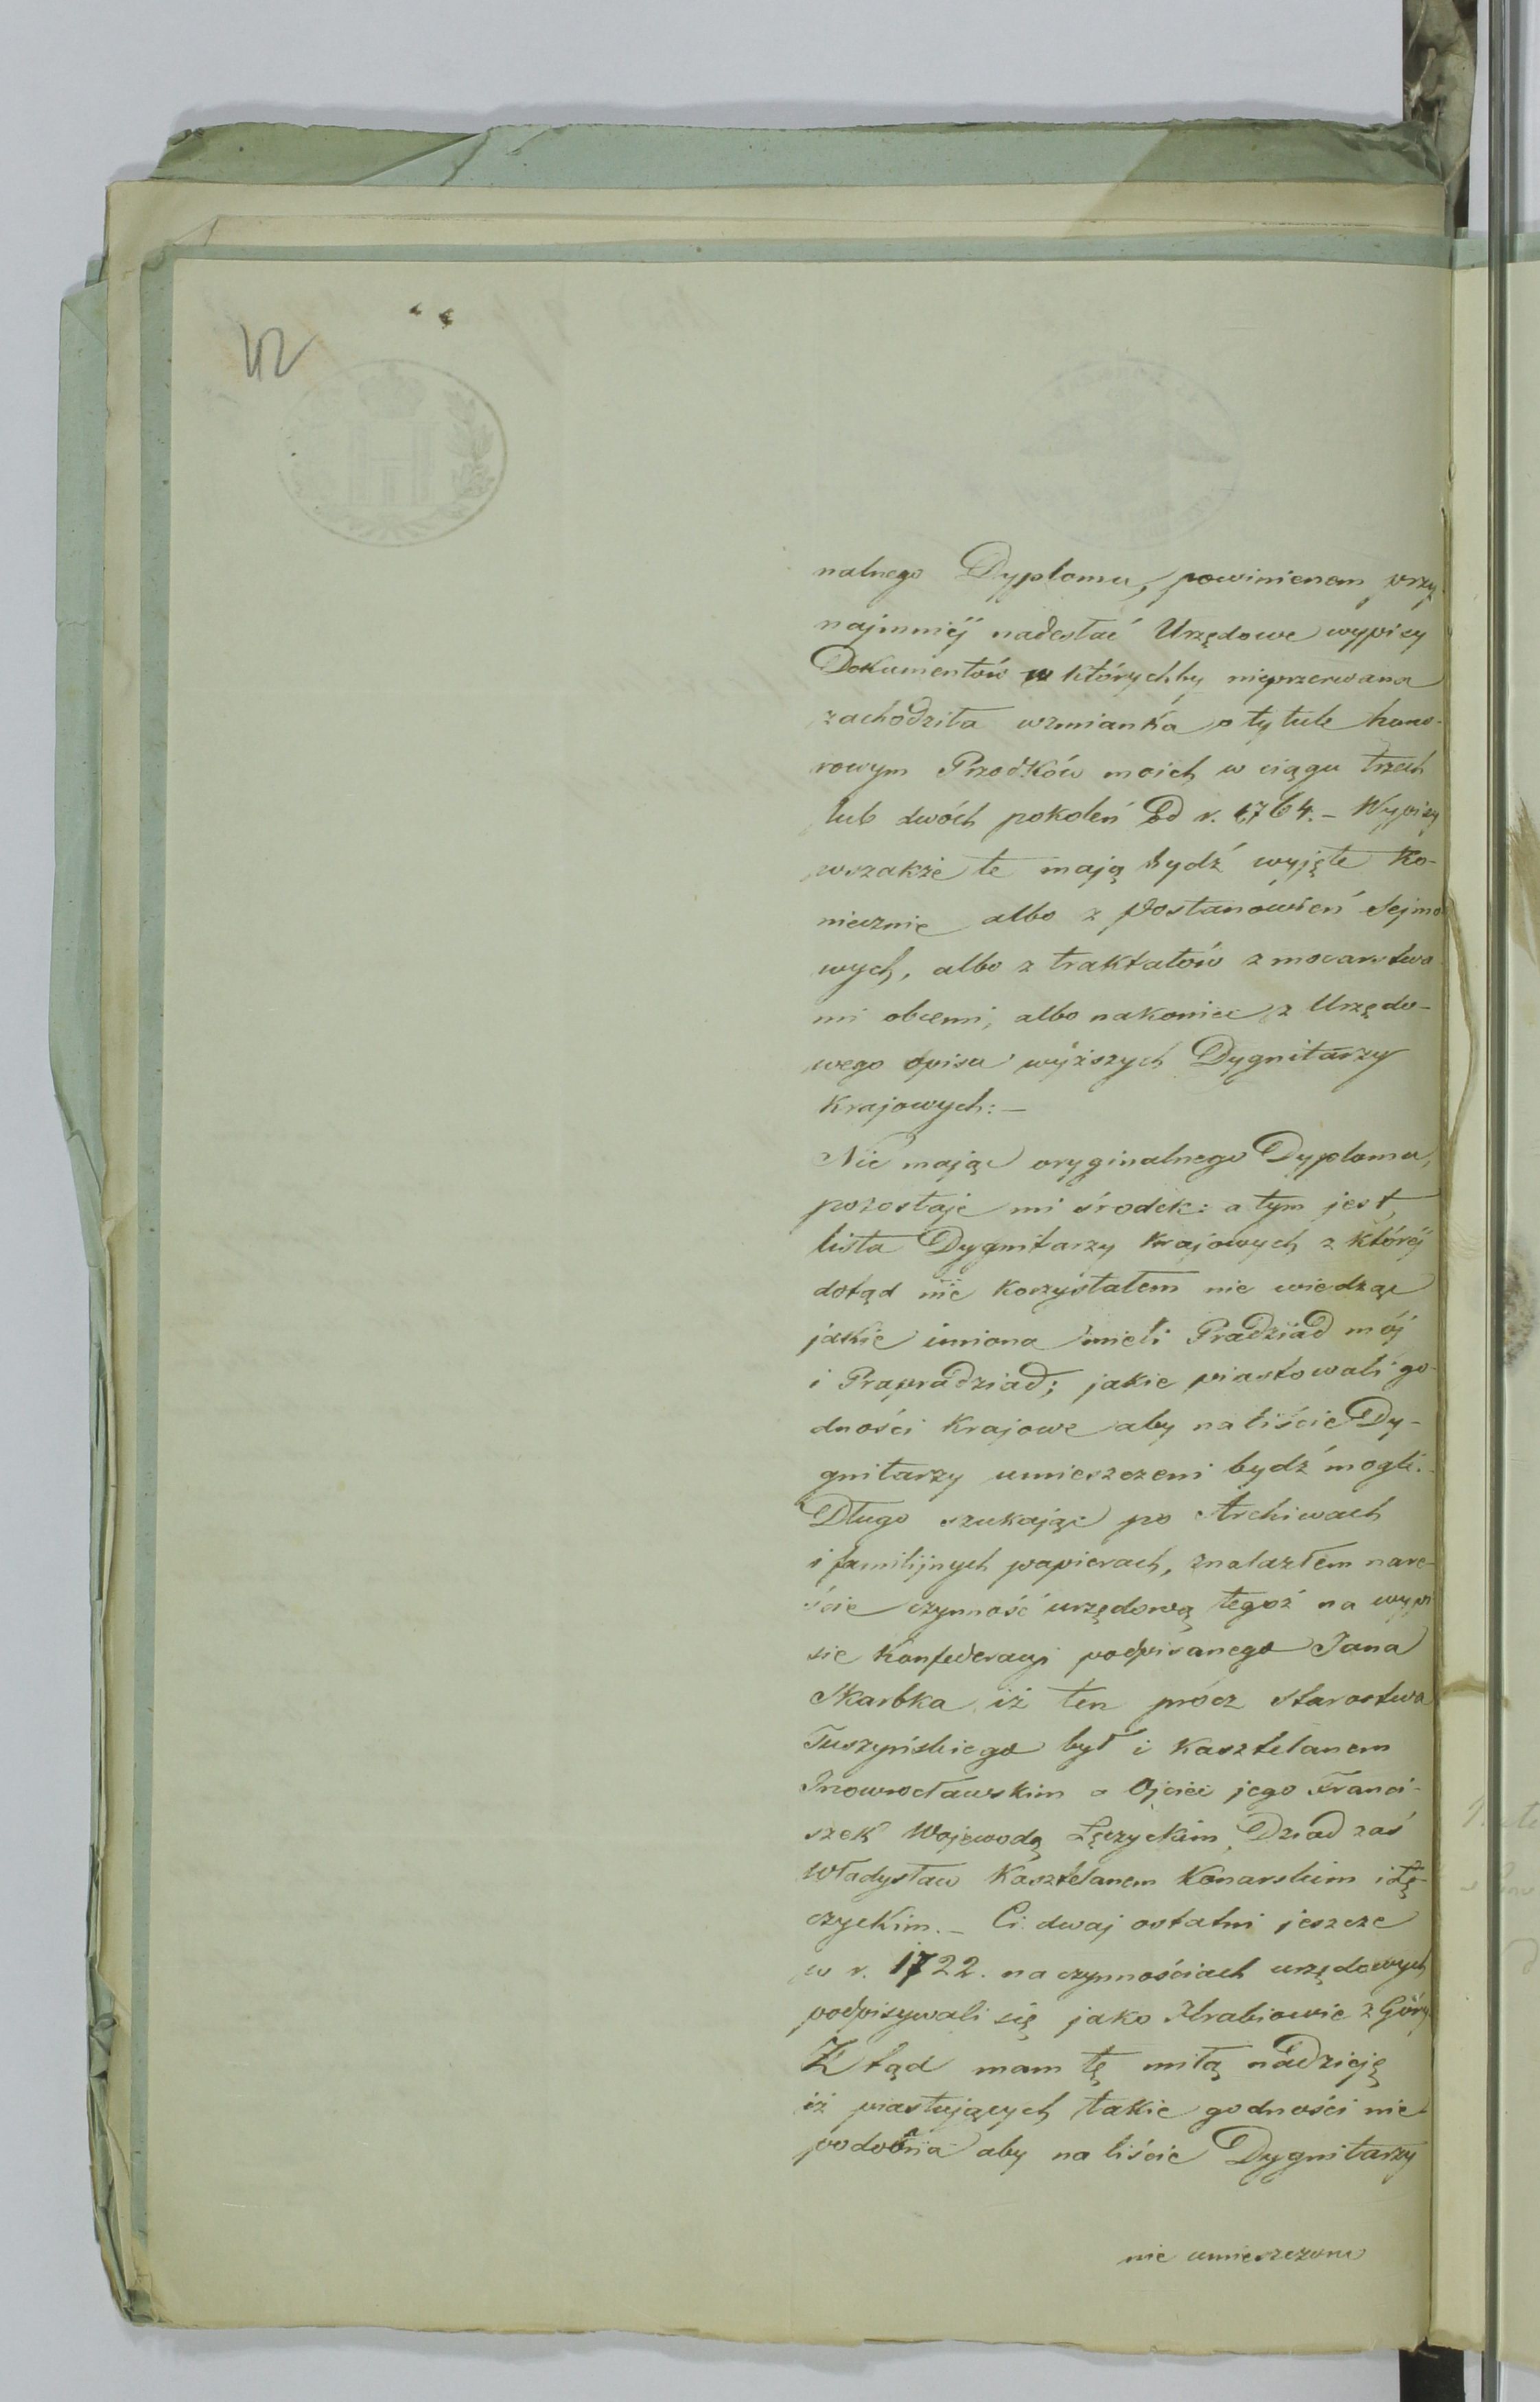 42
nalnego Dyplomu, powinienem przy
najmniéj nadesłać Urzędowe wypisy
Dokumentów w którychby nieprzerwana
zachodziła wzmianka o tytule hono-
rowym Przodków moich w ciągu trzech
lub dwóch pokoleń od r. 1764. – Wypisy
wszakże te mają bydź wyjęte Ko-
niecznie albo z Postanowień Sejmo
wych, albo z traktatów z mocarstwa
mi obcemi, albo nakoniec z Urzędo-
wego spisu wyższych Dygnitarzy
Krajowych: –
Nie mając oryginalnego Dyplomu,
pozostaje mi środek: a tym jest,
lista Dygnitarzy Krajowych z któréj
dotąd nie korzystałem nie wiedząc
jakie imiona mieli Pradziad mój
i Prapradziad; jakie piastowali go-
dności Krajowe aby na liście Dy-
gnitarzy umieszczeni bydź mogli.
Długo szukając po Archiwach
i familijnych papierach, znalazłem nare-
ście czynność urzędową tegoż na wypi
sie Konfederacyi podpisanego Jana
Skarbka iż ten prócz Starostwa
Tuszyńskiego był i Kasztelanem
Inowrocławskim a Ojciec jego Franci-
szek Wojewodą Łęczyckim, Dziad zaś
Władysław Kasztelanem Konarskim i Łę-
czyckim. – Ci dwaj ostatni jeszcze
w r. 1722. na czynnościach urzędowych
podpisywali się jako Hrabiowie z Góry.
Ztąd mam tę miłą nadzieję
iż piastujących takie godności nie
podobna aby na liście Dygnitarzy
nie umieszczono